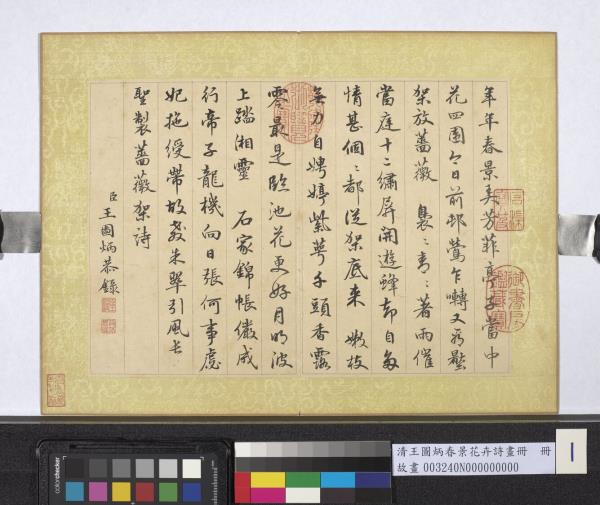 年年春景美芳菲亭子當中
花四圍今日前邨鶯乍囀又看壓
架放薔薇 裊〻青〻著雨催
當庭十二繡屏開遊蜂却自多
情甚個〻都從架底來 嫩枝
無力自娉婷紫萼千頭香露
零最是臨池花更好月明波
上踏湘靈 石家錦帳儼成
行帝子龍機向日張何事虙
妃拖綬帶故教朱翠引風長
聖製薔薇架詩
臣王圖炳恭錄
colorchecker
清王圖炳春景花卉詩畫冊 冊
故畫 003240N000000000
1